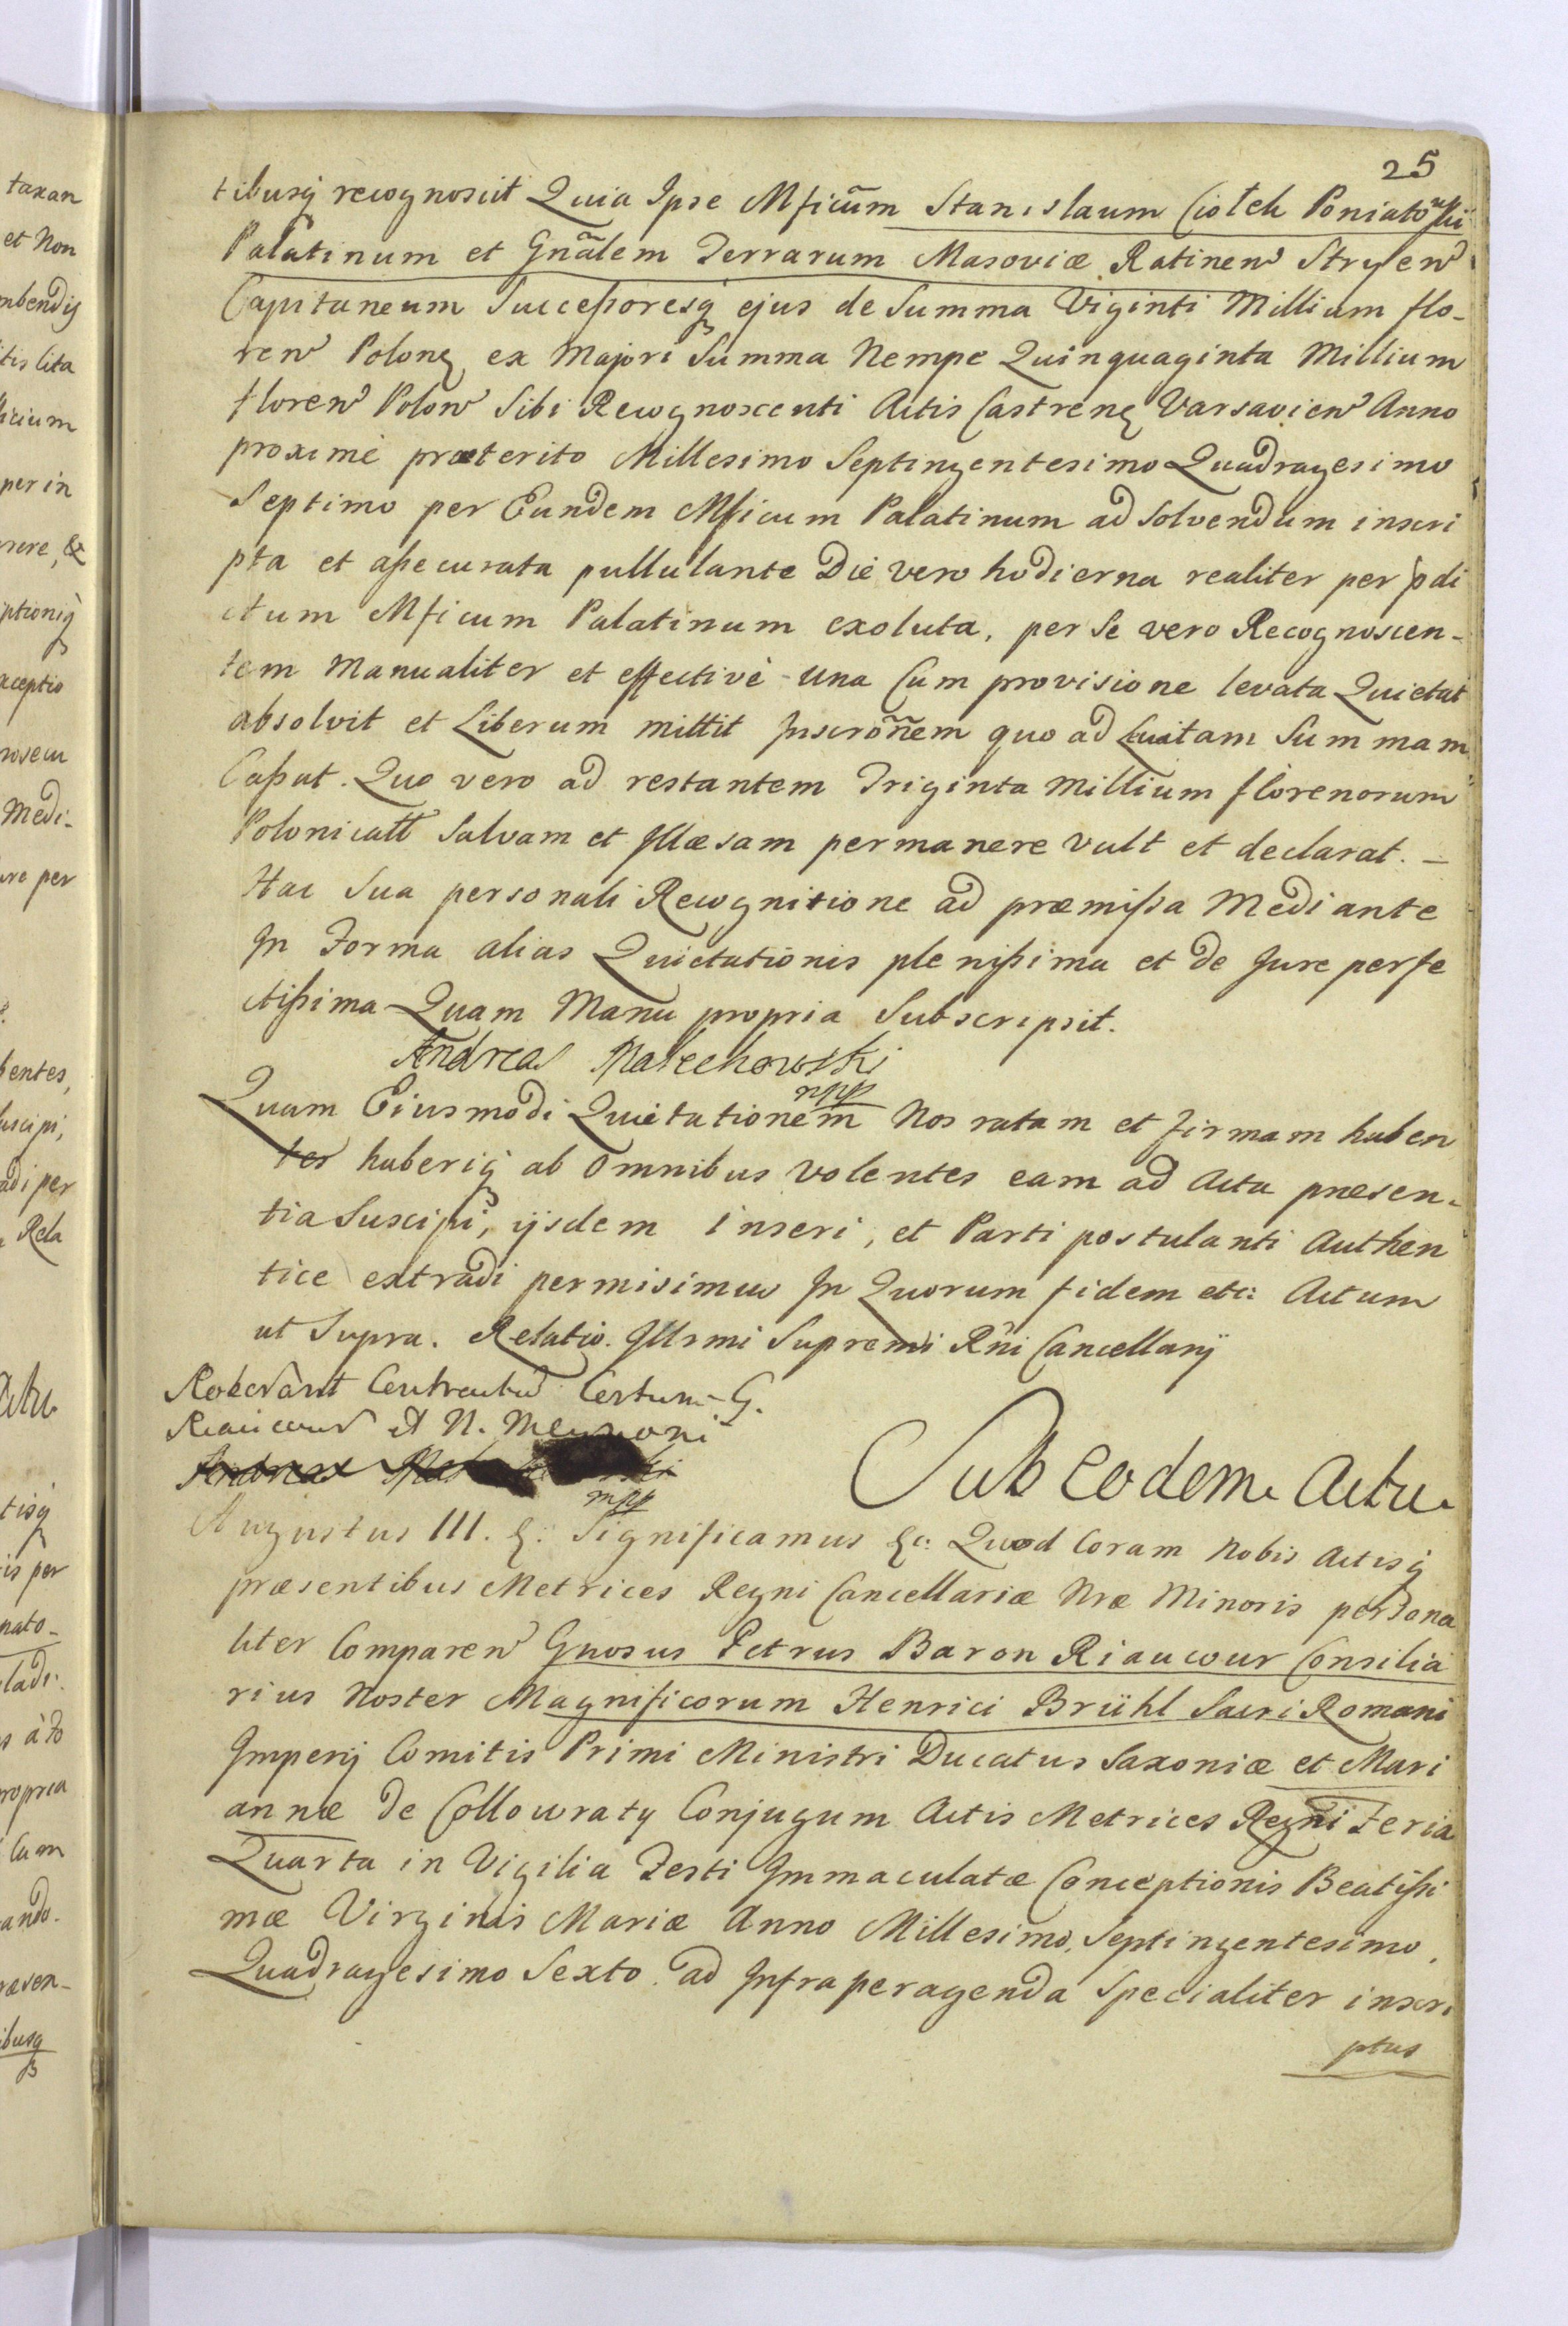 25
tibusq recognoscit Quia Ipse Mficum Stanislaum Ciołek Poniatowski
Palatinum et Gnãlem Terrarum Masoviæ Ratinen Stryen
Capitaneum Successoresq ejus de Summa Viginti Millium flo-
ren Polon ex Majori Summa Nempe Quinquaginta Millium
floren Polon Sibi Recognoscenti Actis Castren Varsavien Anno
proximè præterito Millesimo Septingentesimo Quadragesimo
Septimo per Eundem Mficum Palatinum ad Solvendum inscri
pta et assecurata pullulante Die vero hodierna realiter per pdi
ctum Mficum Palatinum exoluta, per Se vero Recognoscen-
tem Manualiter et effectivè una Cum provisione levata Quietat
absolvit et Liberum mittit Inscrõnem quo ad Levatam Summam
Cassat. Quo vero ad restantem Triginta Millium florenorum
Polonicall Salvam et Illæsam permanere vult et declarat. –
Hac Sua personali Recognitione ad præmissa Mediante
In Forma alias Quietationis plenissima et de Jure perfe
ctissima Quam Manu propria Subscripsit.
Andreas Małechowski
mpp
Quam Eiusmodi Quietationem Nos ratam et firmam haben
tes haberiq ab omnibus volentes eam ad Acta præsen-
tia Suscipi, ijsdem inseri, et Parti postulanti Authen
tice extradi permisimus In Quorum fidem etc: Actum
ut Supra. Relatio. Illrmi Supremi Rñi Cancellarij
Roborant Contractum Certum G.
Riaucour et N.
Andreas
mpp
Sub eodem Actu
Augustus III. &. Significamus &c: Quod Coram Nobis Actisq
præsentibus Metrices Regni Cancellariæ Nræ Minoris persona
liter Comparen Gnosus Petrus Baron Riaucour Consilia
rius Noster Magnificorum Henrici Brühl Sacri Romani
Imperij Comitis Primi Ministri Ducatus Saxoniæ et Mari
annæ de Collowraty Conjugum Actis Metrices Regni Feria
Quarta in Vigilia Festi Immaculatæ Conceptionis Beatissi
mæ Virginis Mariæ Anno Millesimo Septingentesimo
Quadragesimo Sexto ad Infra peragenda Specialiter inscri
ptus